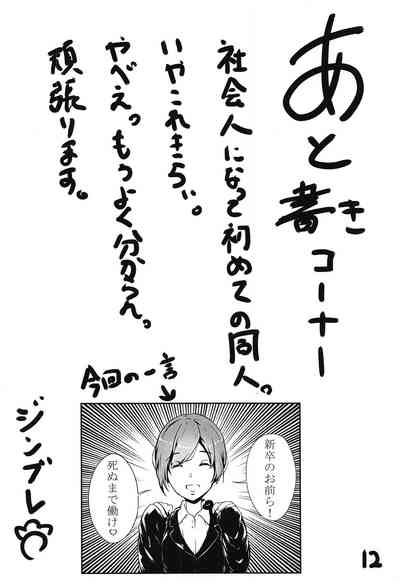 あと書きコーナー
社会人になって初めての同人。
いやこれきちぃ。
やべぇっもうよく分からんっ
頑張ります。
今回の一言
新卒のお前ら！
死ぬまで働け♡
ジンブレ
12